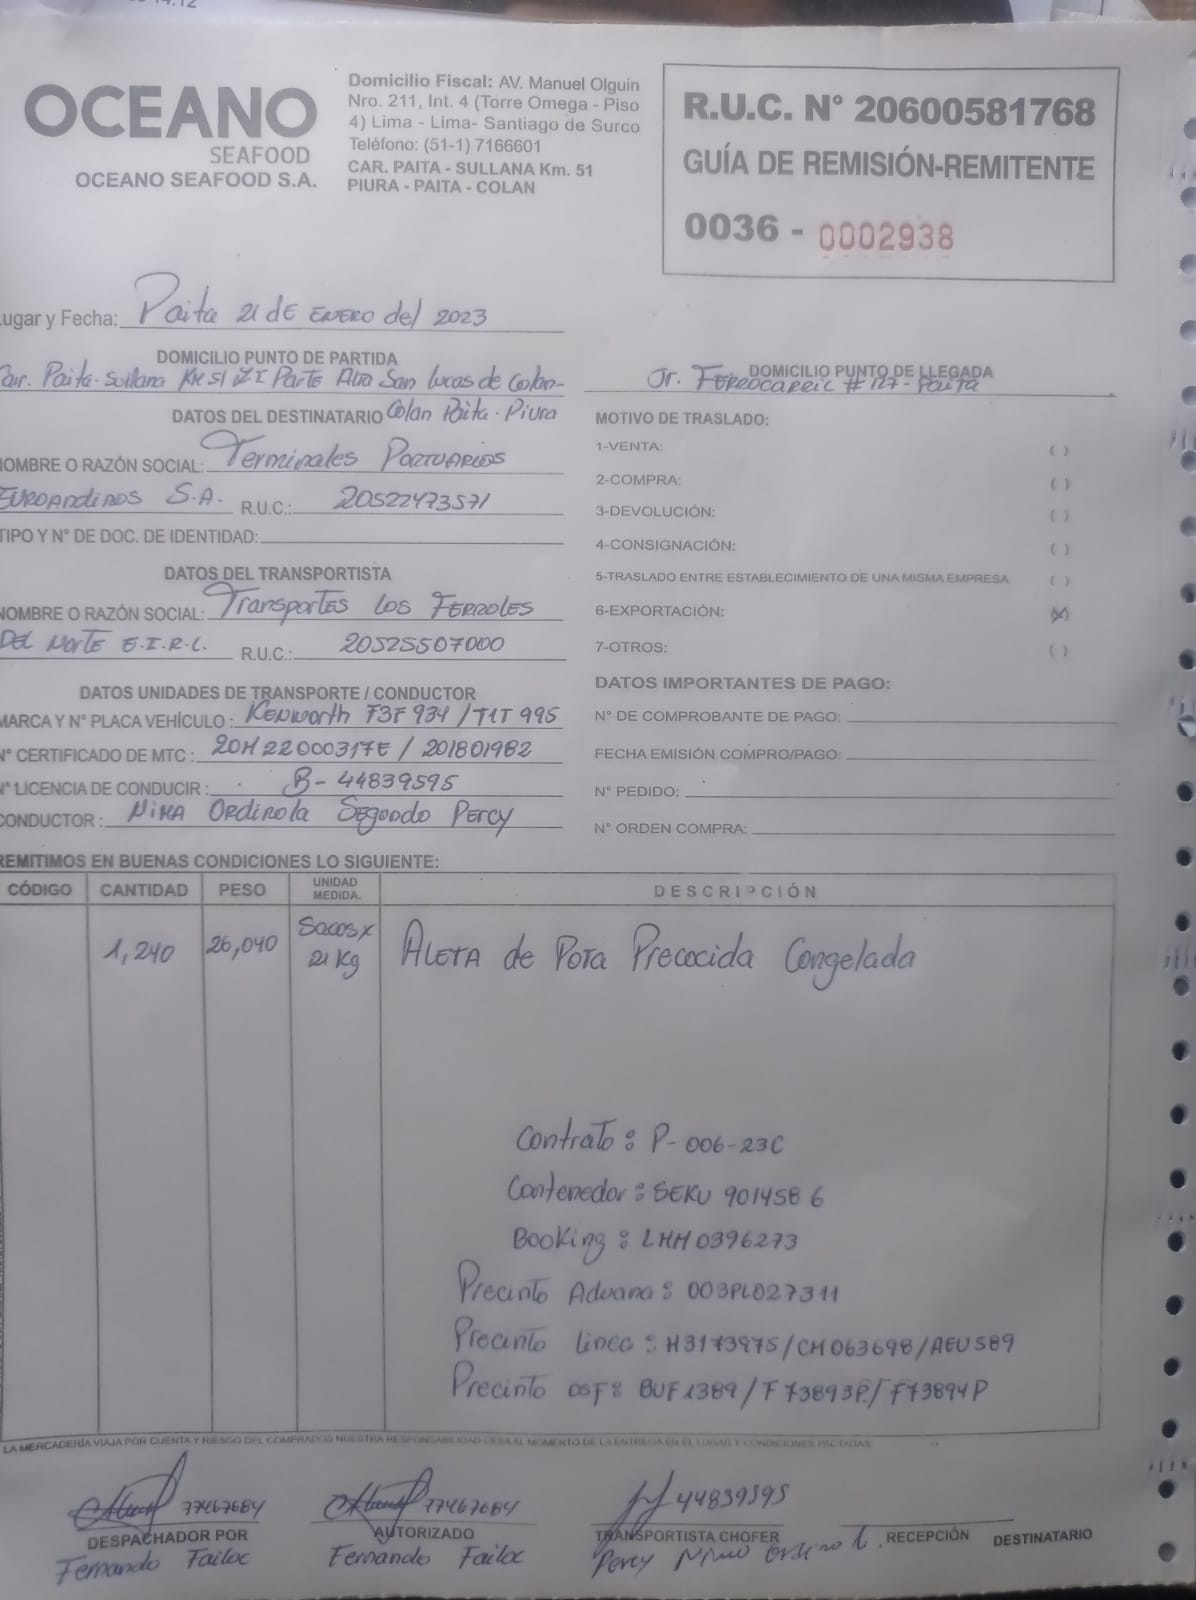 OCEANO
SEAFOOD
OCEANO SEAFOOD S.A.
Domicilio Fiscal: AV. Manuel Olguin
Nro. 211, Int. 4 (Torre Omega - Piso
4) Lima - Lima- Santiago de Surco
Teléfono: (51-1) 7166601
CAR. PAITA - SULLANA Km. 51
PIURA - PAITA - COLAN
R.U.C. N° 20600581768
GUÍA DE REMISIÓN-REMITENTE
0036 - 0002938
Lugar y Fecha: Paita 21 de ENERO del 2023
DOMICILIO PUNTO DE PARTIDA
Car. Paita-Sullana KM 51 Z.I Parte Alta San Lucas de Colan-
Colan Paita - Piura
DOMICILIO PUNTO DE LLEGADA
Jr. FERROCARRIL # 127 - Paita
DATOS DEL DESTINATARIO
NOMBRE O RAZÓN SOCIAL: Terminales PORTUARIOS
EUROANDINOS S.A. R.U.C.: 20522473571
TIPO Y N° DE DOC. DE IDENTIDAD:
MOTIVO DE TRASLADO:
1-VENTA: ( )
2-COMPRA: ( )
3-DEVOLUCIÓN: ( )
4-CONSIGNACIÓN: ( )
5-TRASLADO ENTRE ESTABLECIMIENTO DE UNA MISMA EMPRESA ( )
6-EXPORTACIÓN: (X)
7-OTROS: ( )
DATOS DEL TRANSPORTISTA
NOMBRE O RAZÓN SOCIAL: Transportes los FERROLES
DEL NORTE E.I.R.L. R.U.C.: 20525507000
DATOS UNIDADES DE TRANSPORTE / CONDUCTOR
MARCA Y N° PLACA VEHÍCULO: Kenworth F3F 934 / T1T 995
N° CERTIFICADO DE MTC: 20M22000317E / 201801982
N° LICENCIA DE CONDUCIR: B- 44839595
CONDUCTOR: NIMA Ordinola Segundo Percy
DATOS IMPORTANTES DE PAGO:
N° DE COMPROBANTE DE PAGO:
FECHA EMISIÓN COMPRO/PAGO:
N° PEDIDO:
N° ORDEN COMPRA:
REMITIMOS EN BUENAS CONDICIONES LO SIGUIENTE:
CÓDIGO CANTIDAD PESO UNIDAD MEDIDA. DESCRIPCIÓN
1,240 26,040 Sacos x 21 Kg ALETA de POTA Precocida Congelada
Contrato: P-006-23C
Contenedor: SEKU 901458 6
Booking: LMM0396273
Precinto Aduana: 003PL027311
Precinto linea: H3173975/CH063698/AEU589
Precinto OSF: BUF1389/F73893P/F73894P
LA MERCADERÍA VIAJA POR CUENTA Y RIESGO DEL COMPRADOS NUESTRA RESPONSABILIDAD CESA AL MOMENTO DE LA ENTREGA EN EL LUGAR Y CONDICIONES PACTADAS
77467684
DESPACHADOR POR
Fernando Failoc
77467684
AUTORIZADO
Fernando Failoc
44839595
TRANSPORTISTA CHOFER
Percy Nima Ordinola
RECEPCIÓN DESTINATARIO